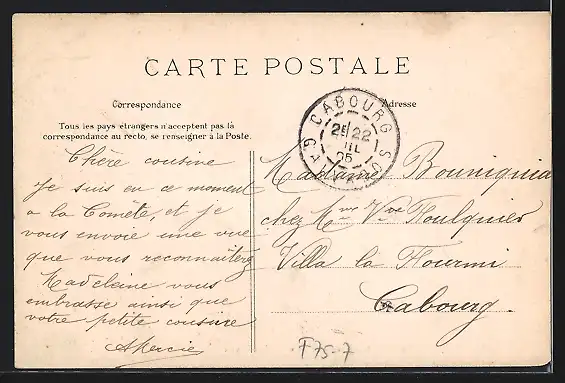 CARTE POSTALE
Correspondance
Adresse
Tous les pays étrangers n'acceptent pas la
correspondance au recto, se renseigner à la Poste.
CABOURG
22
05
Chère cousine
Je suis en ce moment
a la Comête, et je
vous envoie une vue
que vous reconnaîtrez
Madeleine vous
embrasse ainsi que
votre petite cousine
Madame
chez Mme Vve Foulquier
Villa la Fourmi
Cabourg.
F75-7